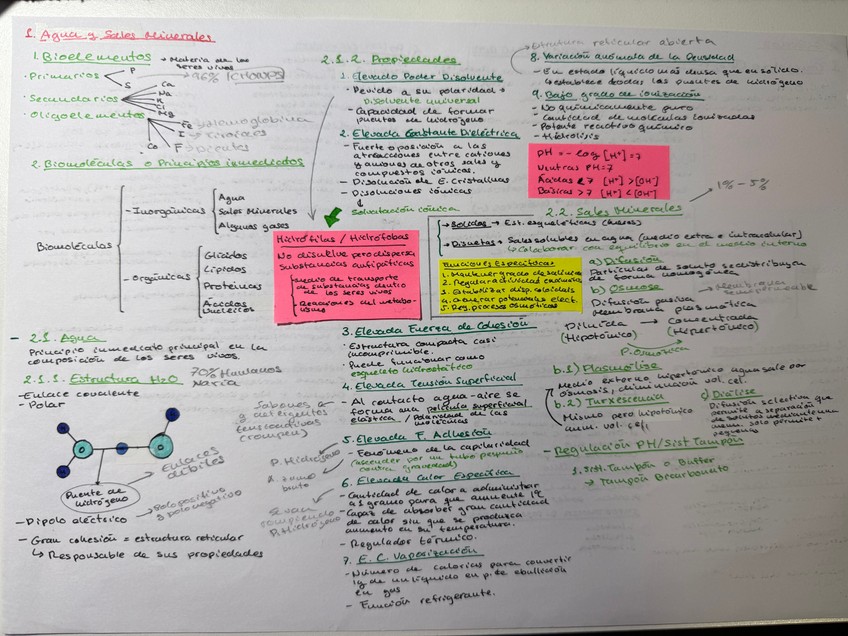 1. Agua y Sales Minerales
1. Bioelementos → Materia de los
seres vivos
· Primarios
P
S
→ 96% (CHONPS)
· Secundarios
Ca
Na
K
Cl
Mg
· Oligoelementos
Fe → Hemoglobina
I → Tiroides
F → Dientes
Co
2. Biomoléculas o Principios inmediatos
Biomoléculas
- Inorgánicas
Agua
Sales Minerales
Algunos gases
- Orgánicas
Glícidos
Lípidos
Proteínas
Ácidos
Nucleicos
- 2.1. Agua
Principio inmediato principal en la
composición de los seres vivos.
70% Humanos
2.1.1. Estructura H2O
- Enlace covalente
- Polar
O
O
Enlaces
débiles
Puente de
hidrógeno
- Dipolo eléctrico → Polo positivo
y polo negativo
- Gran cohesión = estructura reticular
↳ Responsable de sus propiedades
2.1.2. Propiedades
1. Elevado Poder Disolvente
- Debido a su polaridad →
Disolvente universal
- Capacidad de formar
puentes de hidrógeno
2. Elevada Constante Dieléctrica
- Fuerte oposición a las
atracciones entre cationes
y aniones de otros sales y
compuestos iónicos.
- Disolución de E. Cristalinas
- Disoluciones iónicas
↓
Solvatación iónica
Hidrófilas / Hidrófobas
No disuelve pero dispersa
substancias anfipáticas
- Medio de transporte
de substancias dentro
de los seres vivos
- Reacciones del metabo-
lismo
3. Elevada Fuerza de Cohesión
· Estructura compacta casi
incomprimible.
· Puede funcionar como
esqueleto hidrostático
4. Elevada Tensión Superficial
- Al contacto agua-aire se
forma una película superficial
elástica / Polaridad de las
moléculas
Sabones y
detergentes
(tensioactivos
rompen)
5. Elevada F. Adhesión
- Fenómeno de la capilaridad
(ascender por un tubo pequeño
contra gravedad)
P. Hidrógeno
6. Elevada Calor Específica
- Cantidad de calor a administrar
a 1 gramo para que aumente 1ºC
- Capaz de absorber gran cantidad
de calor sin que se produzca
aumento en su temperatura.
- Regulador térmico.
Se van
rompiendo
P. Hidrógeno
7. E. C. Vaporización
- Número de calorías para convertir
1g de un líquido en p. de ebullición
en gas
- Función refrigerante.
Estrutura reticular abierta
8. Variación anómala de la Densidad
- En estado líquido más densa que en sólido.
↳ establece todos los puentes de hidrógeno
9. Bajo grado de ionización
- No químicamente puro
- Cantidad de moléculas ionizadas
- Potente reactivo químico
- Hidrólisis
PH = - log [H+] = 7
Neutras PH=7
Ácidas < 7 [H+] > [OH-]
Básicas > 7 [H+] < [OH-]
1% - 5%
2.2. Sales Minerales
→ Sólidas → Est. esqueléticas (huesos)
→ Disueltas → Sales solubles en agua (medio extra e intracelular)
↳ Colaborar con equilibrio en el medio interno
Funciones Específicas:
1. Mantener grado de salinidad
2. Regular actividad enzimática
3. Estabilizar disp. coloidales
4. Generar potenciales eléct.
5. Reg. procesos osmóticos
a) Difusión
Partículas de soluto se distribuyen
de forma homogénea
b) Osmose
Difusión pasiva
Membrana plasmática
→ Membrana
semipermeable
Diluida → Concentrada
(Hipotónico) (Hipertónico)
P. Osmótica
b.1) Plasmólise
Medio externo hipertónico agua sale por
ósmosis, diminución vol. cel.
b.2) Turxescencia
Mismo pero hipotónico
aum. vol. cel.
c) Diálise
Difusión selectiva que
permite a separación
de solutos mediante una
mem. solo permite +
pequeño
- Regulación PH/Sist Tampón
1. Sist. Tampón o Buffer
→ Tampón Bicarbonato